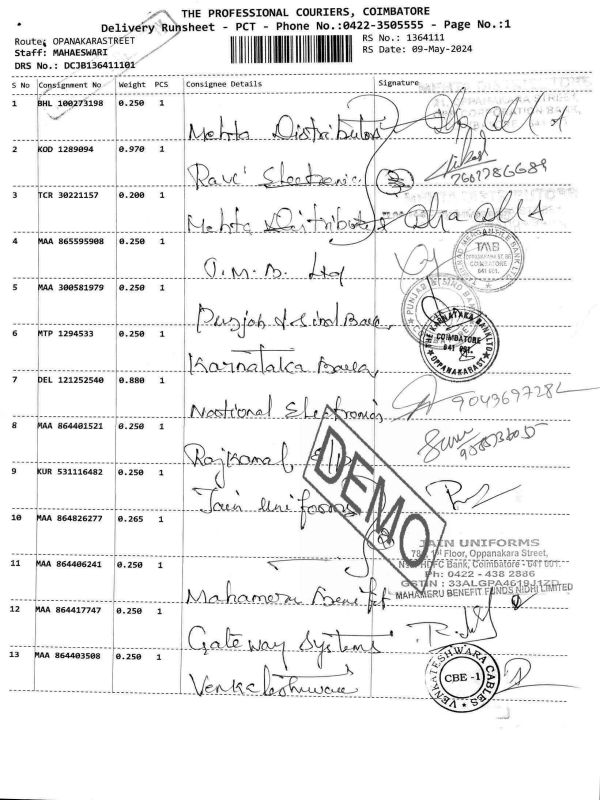 THE PROFESSIONAL COURIERS, COIMBATORE
Delivery Runsheet - PCT - Phone No.:0422-3505555 - Page No.:1
Route: OPANAKARASTREET
RS No.: 1364111
Staff: MAHAESWARI
RS Date: 09-May-2024
DRS No.: DCJB136411101
S No Consignment No Weight PCS Consignee Details Signature
1 BHL 100273198 0.250 1
Mehta Distributors
2 KOD 1289094 0.970 1
Ravi Electronic
3 TCR 30221157 0.200 1
Mehta Distributors
4 MAA 865595908 0.250 1
T.M.B. Ltd
TMB
COIMBATORE
641 001.
5 MAA 300581979 0.250 1
Punjab & Sind Bank
6 MTP 1294533 0.250 1
THE KARNATAKA BANK LTD
COIMBATORE
641 001.
OPPANAKARA ST
Karnataka Bank
7 DEL 121252540 0.880 1
National Electronics 9043697282
8 MAA 864401521 0.250 1
Rajkamal
9 KUR 531116482 0.250 1
Jain uniforms
DEMO
10 MAA 864826277 0.265 1
JAIN UNIFORMS
1st Floor, Oppanakara Street,
HDFC Bank, Coimbatore - 641 001.
Ph: 0422 - 438 2886
GSTIN : 33ALGPA4619J1ZD
11 MAA 864406241 0.250 1
MAHAMERU BENEFIT FUNDS NIDHI LIMITED
Mahameru Benefit
12 MAA 864417747 0.250 1
Gateway Systems
13 MAA 864403508 0.250 1
Venkateshwara
VENKATESHWARA CABLES
CBE -1